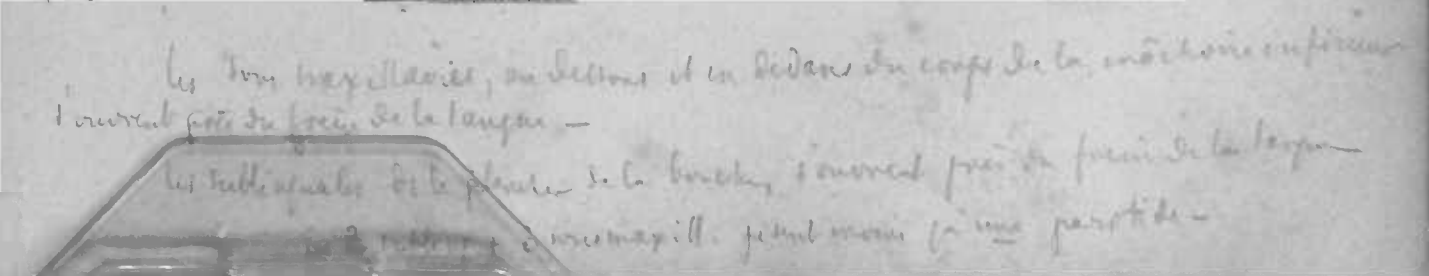 les sous maxillaires, au dessous et en dedans du corps de la mâchoire inférieure
s'ouvrent près du frein de la langue —
les sublinguales de le plancher de la bouche, s'ouvrent près du frein de la langue
sousmaxill. moins qu'une parotide —